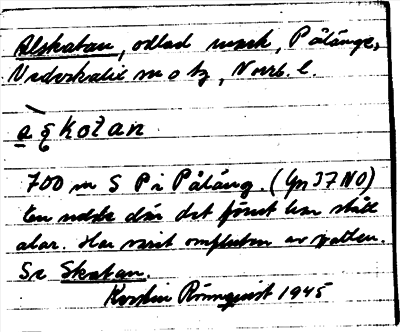 Alskatan, odlad mark, Pålänge,
Nederkalix sn o tg, Norrb. l.
a ş kotan
700 m S P i Påläng. (Gn 37 NO)
En udde där det förut har stått
alar. Har varit omfluten av vatten.
Se Skatan.
Kerstin Rönnqvist 1945